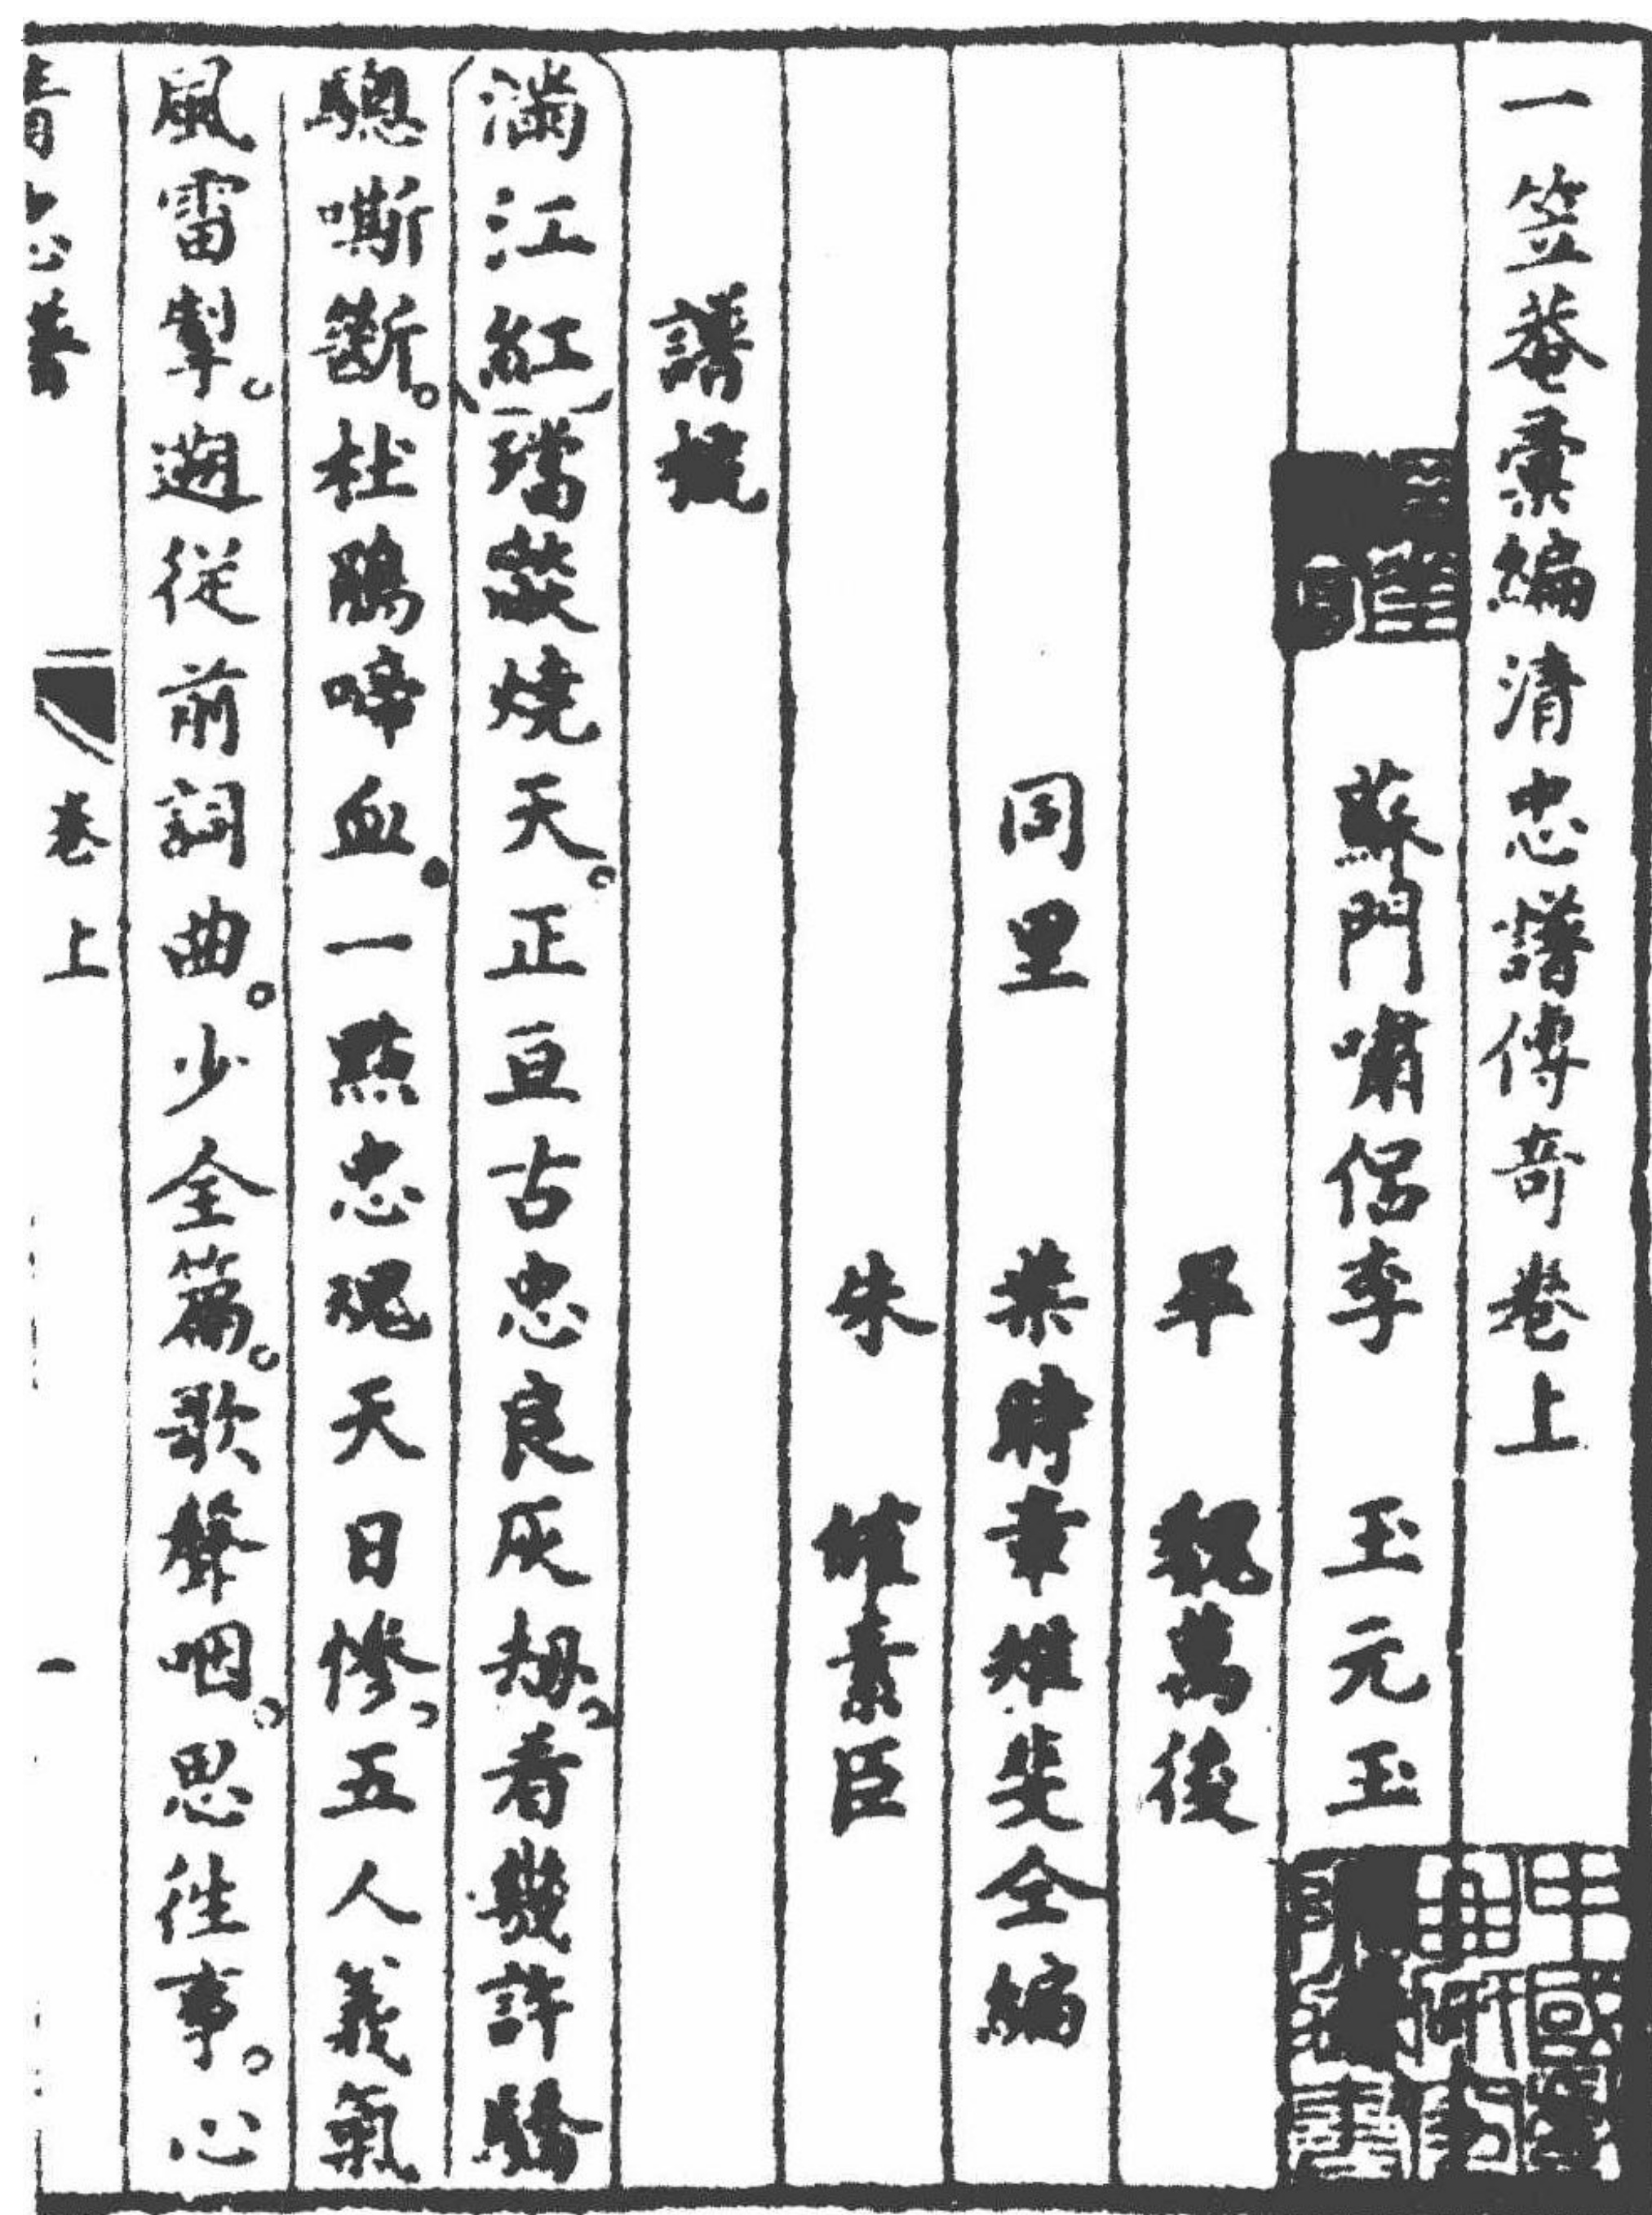 一笠菴彙編清忠譜傳奇卷上
蘇門嘯侶李 玉元玉
畢 魏萬後
同里 葉時章雉斐仝編
朱 㿥素臣
譜概
滿江紅 璫燄燒天。正亘古忠良灰劫。看幾許驕
驄嘶斷。杜鵑啼血。一點忠魂天日慘。五人義氣
風雷掣。遡從前詞曲。少全篇。歌聲咽。思往事。心
清忠譜 卷上 一